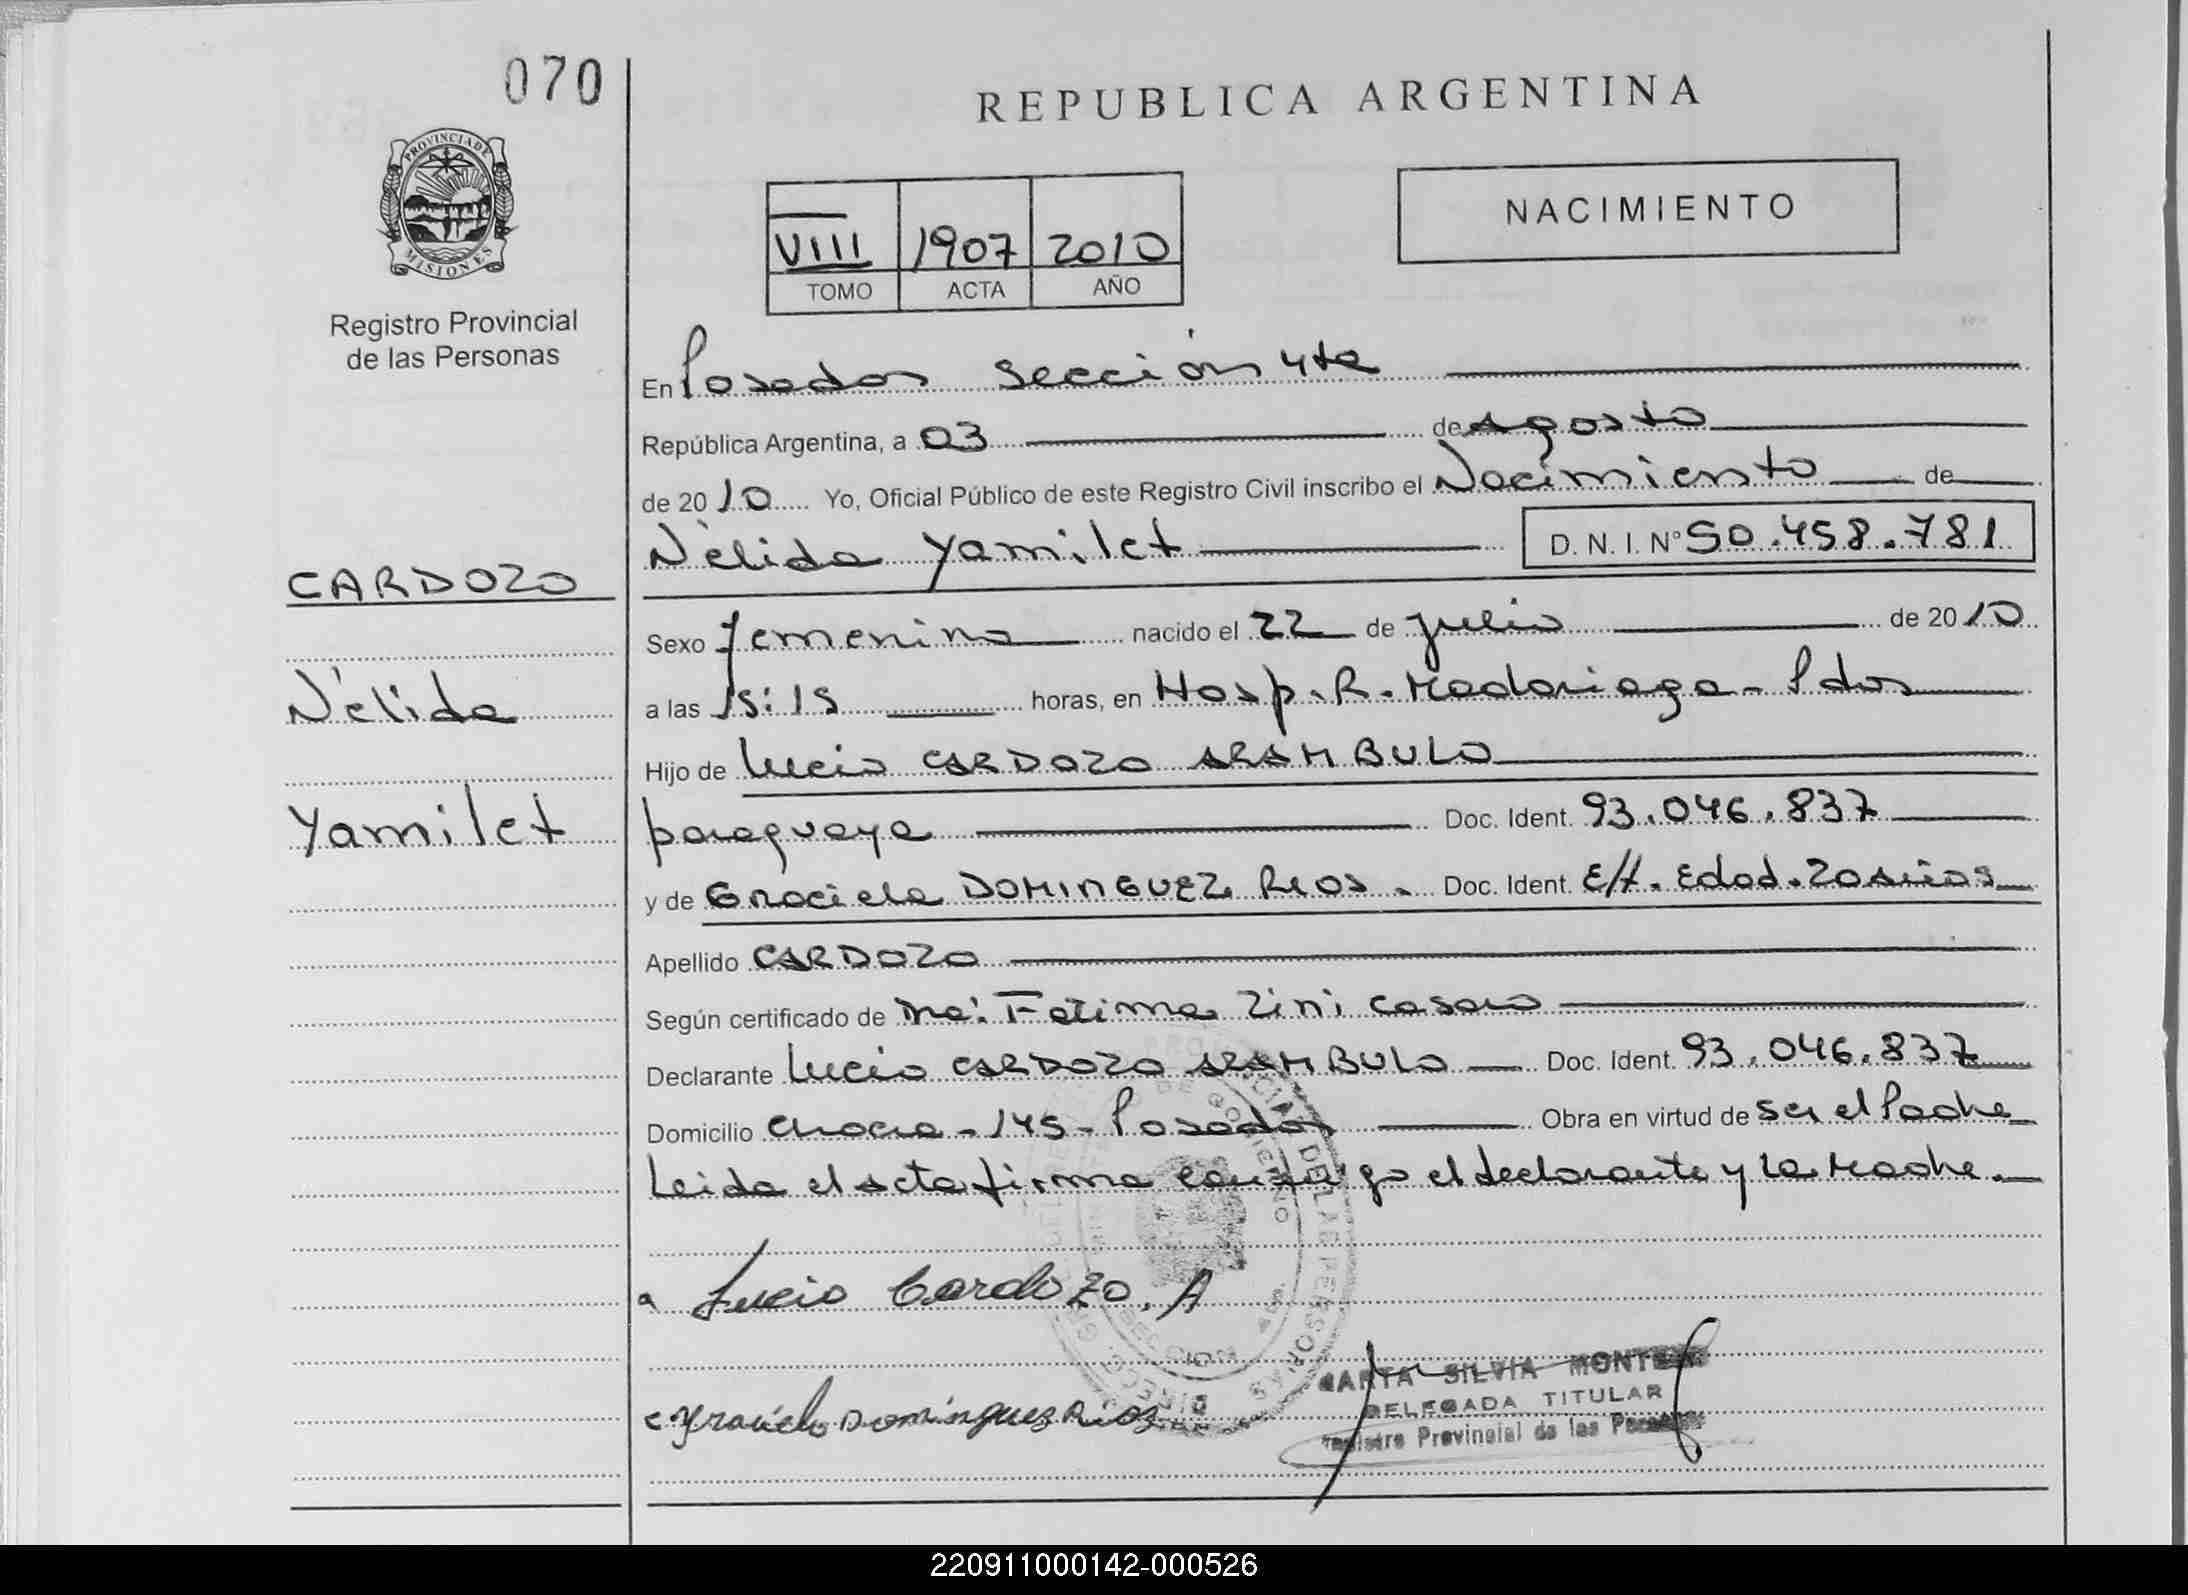 070
REPUBLICA ARGENTINA
PROVINCIA DE
MISIONES
Registro Provincial
de las Personas
VIII 1907 2010
TOMO ACTA AÑO
NACIMIENTO
En Posadas Sección 4ta
República Argentina, a 03 de Agosto
de 2010 Yo, Oficial Público de este Registro Civil inscribo el Nacimiento de
Nélida Yamilet D. N. I. N° 50.458.781
CARDOZO
Nélida
Yamilet
Sexo femenino nacido el 22 de julio de 2010
a las 15:15 horas, en Hosp. R. Madariaga - Pdas
Hijo de Lucio CARDOZO ARAMBULO
paraguaya Doc. Ident. 93.046.837
y de Graciela DOMINGUEZ RIOS. Doc. Ident. E/t. Edad. 20 años
Apellido CARDOZO
Según certificado de Ma. Fatima Zini Casaro
Declarante Lucio CARDOZO ARAMBULO Doc. Ident. 93.046.837
Domicilio Chacra - 145 - Posadas Obra en virtud de ser el Padre
Leida el acta firma conmigo el declarante y la Madre.
Lucio Cardozo. A
Graciela Dominguez Rios
MARTA SILVIA
DELEGADA TITULAR
Registro Provincial de las
220911000142-000526